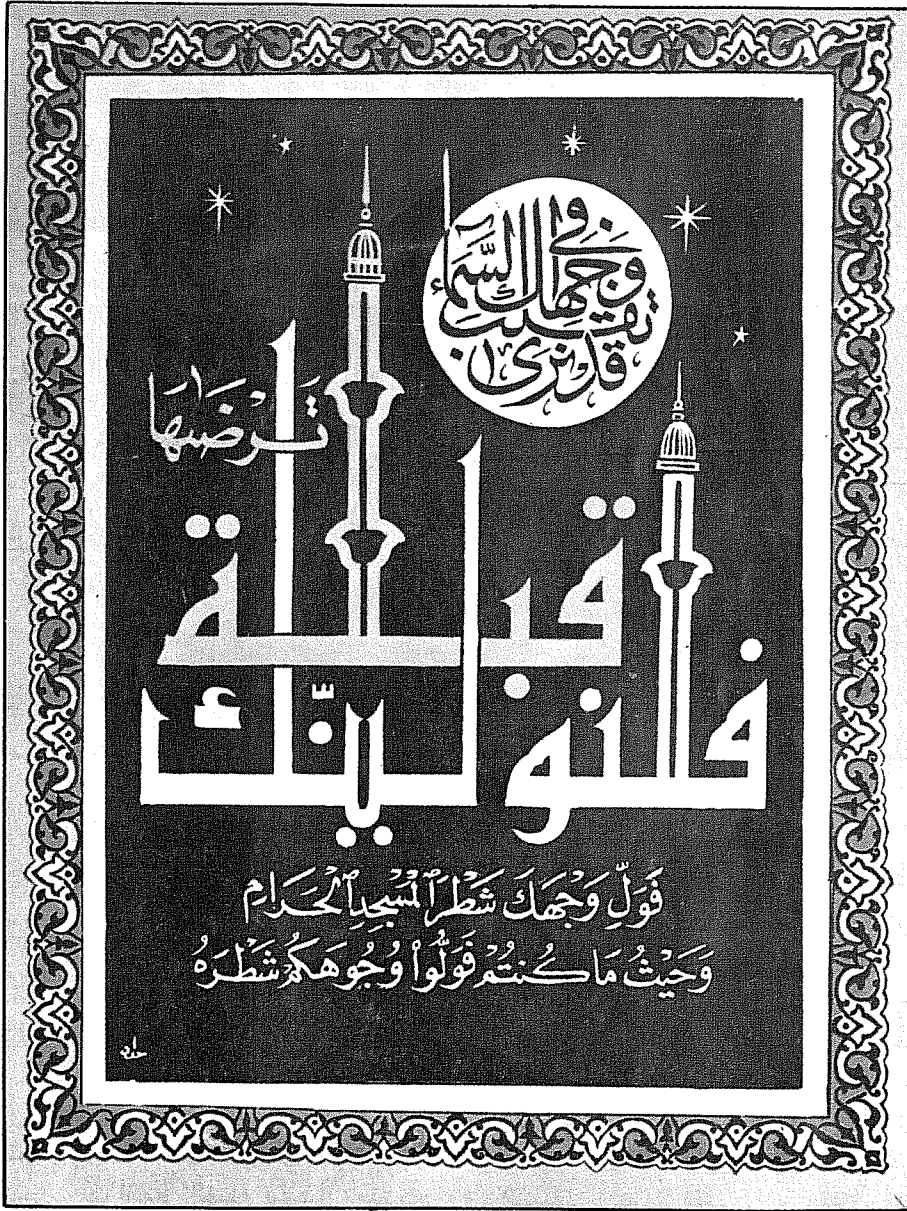 قد نرى
تقلب
وجهك في السماء
فلنولينك
قبلة
ترضىها
فَوَلِّ وَجْهَكَ شَطْرَ ٱلْمَسْجِدِ ٱلْحَرَامِ
وَحَيْثُ مَا كُنتُمْ فَوَلُّوا۟ وُجُوهَكُمْ شَطْرَهُ